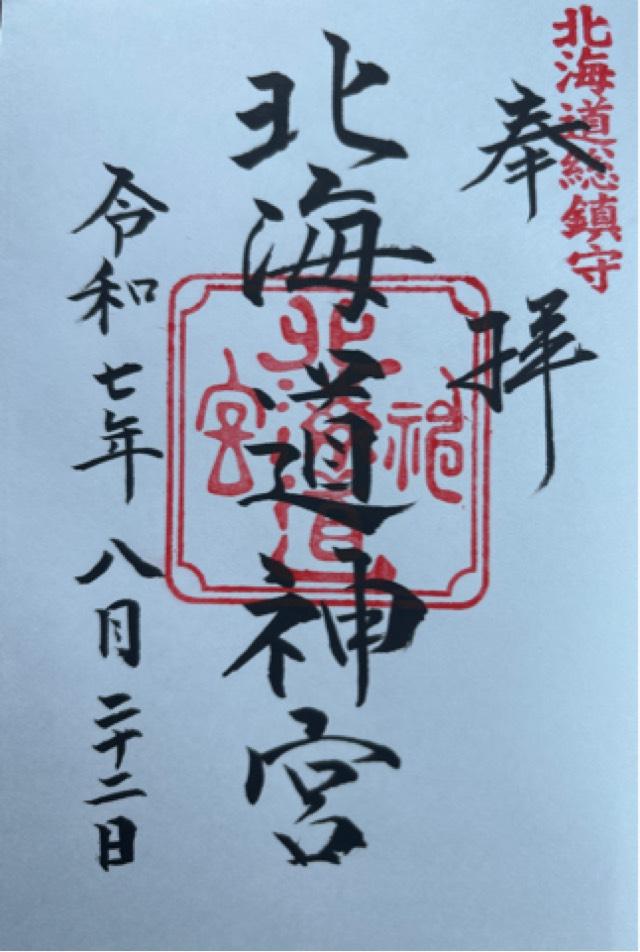 北海道総鎮守
奉拝
北海道神宮
北海道
神宮
令和七年八月二十二日